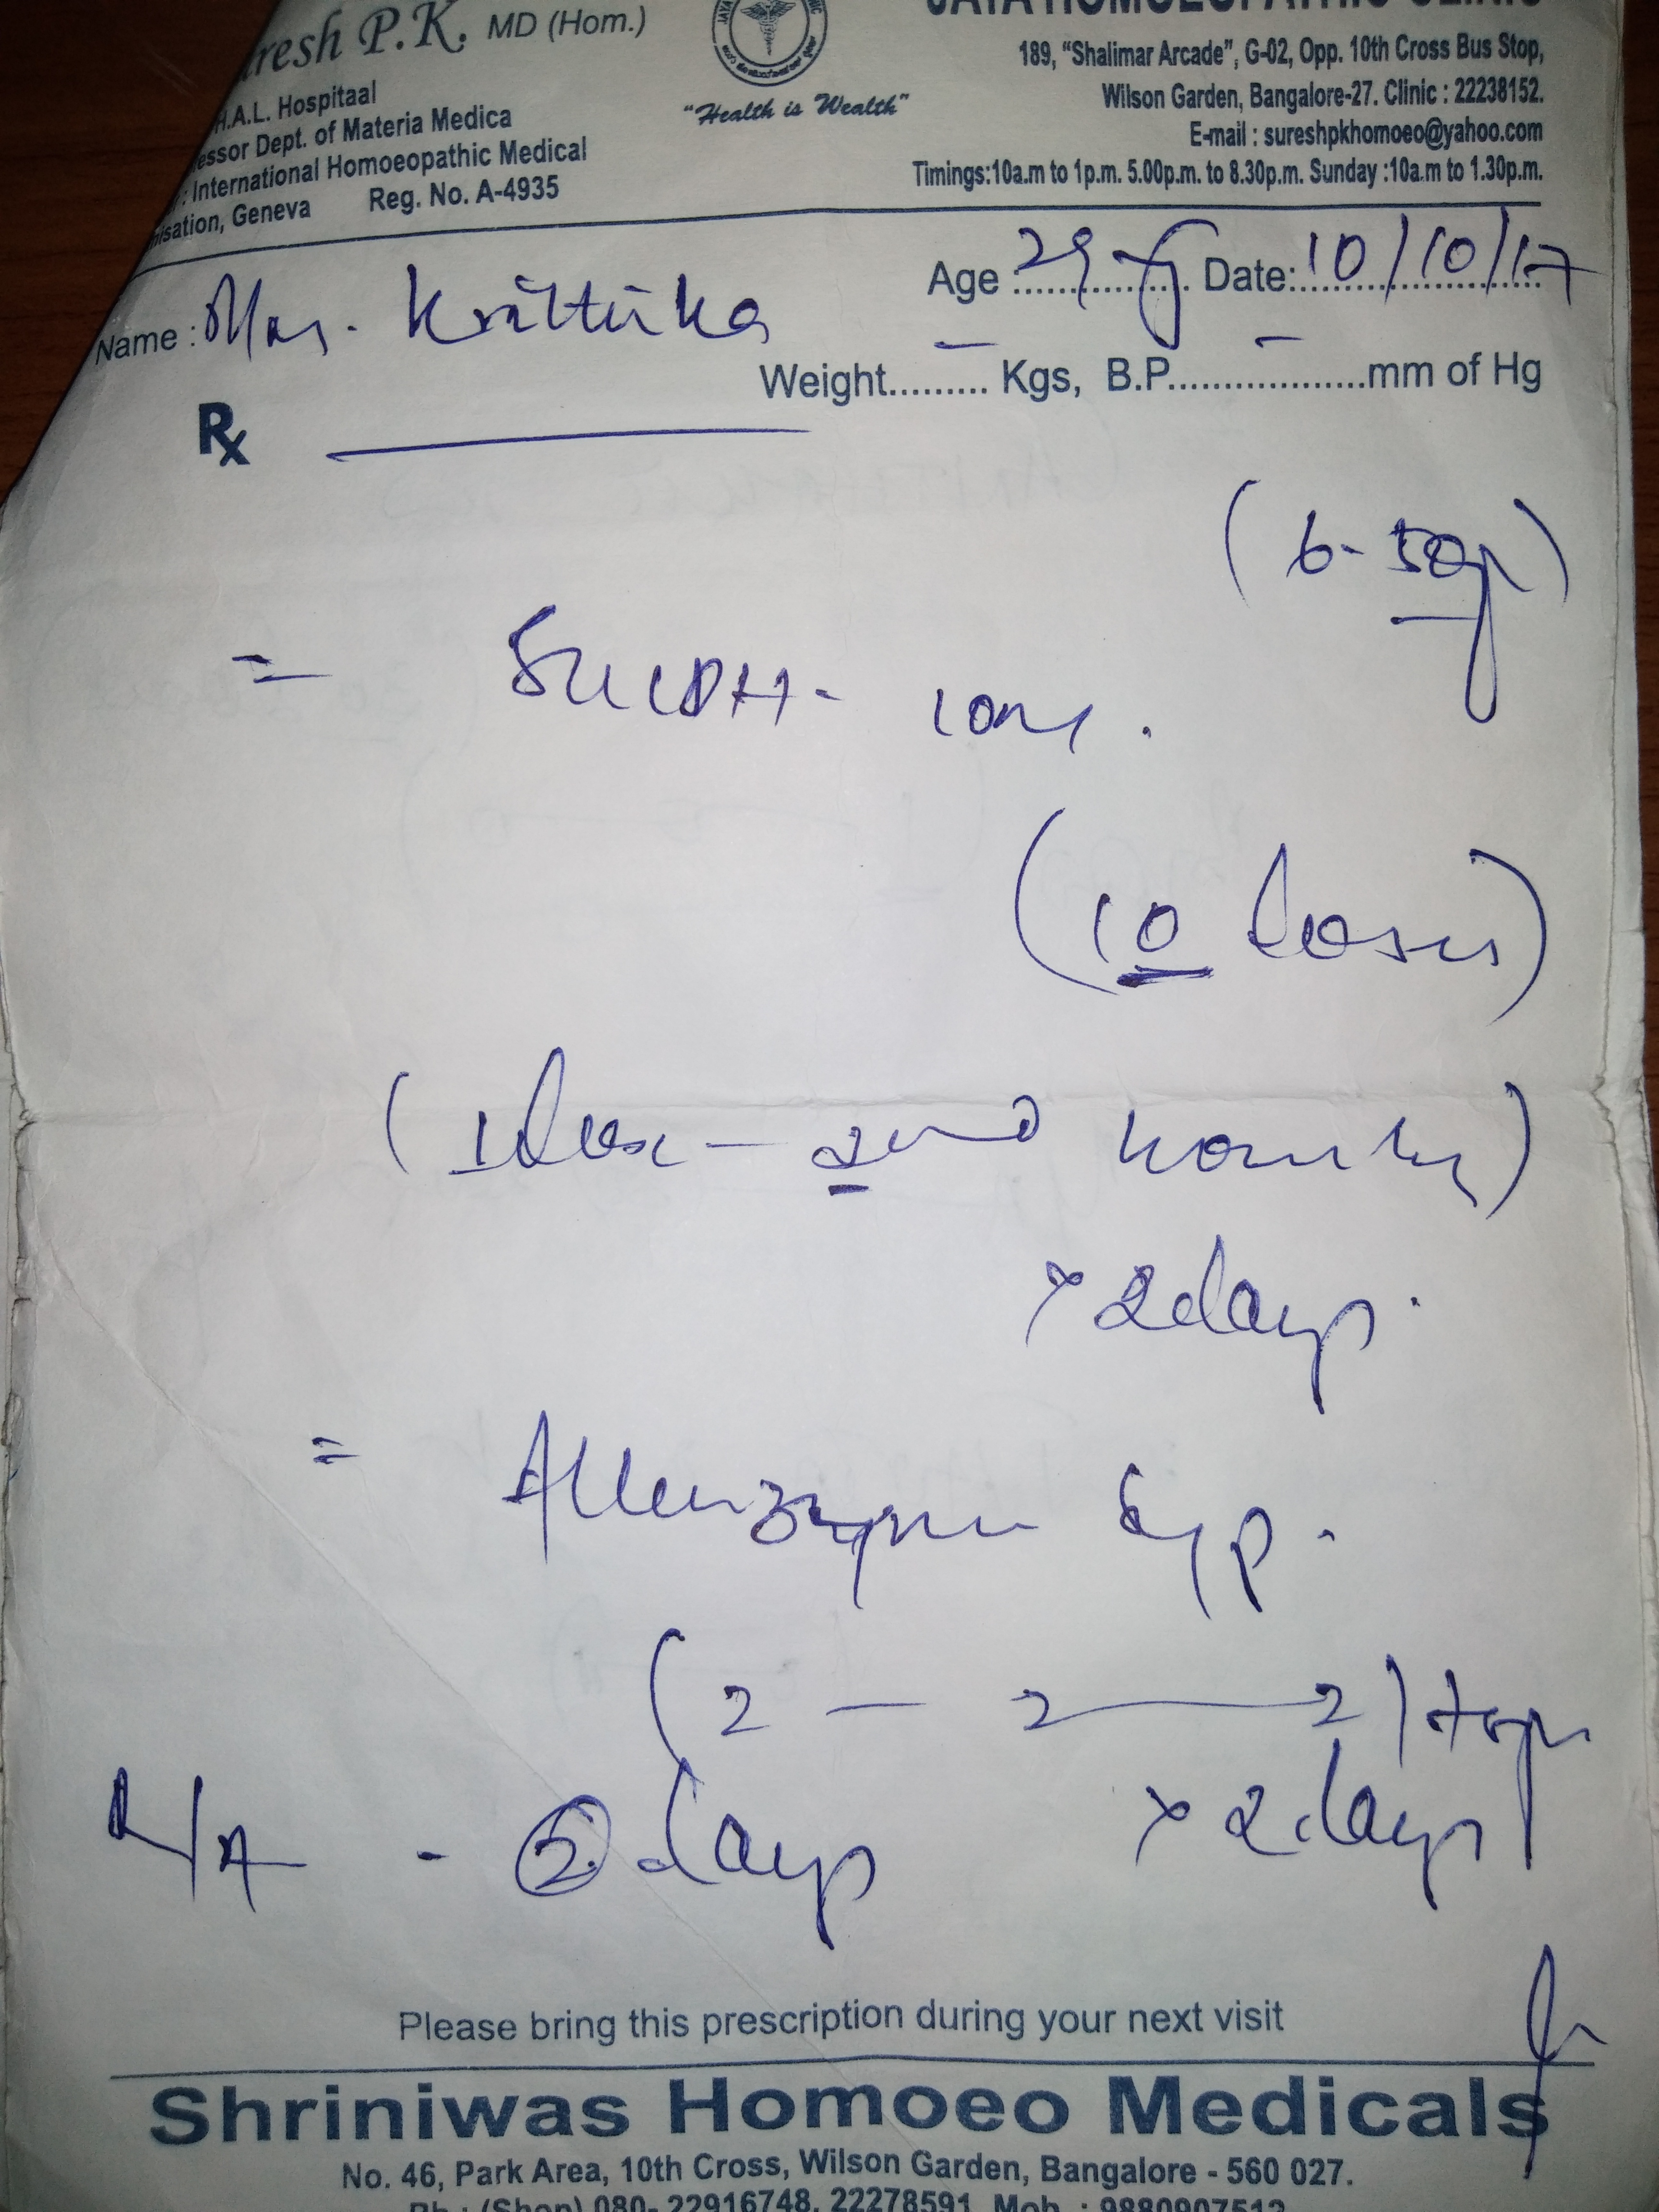 resh P.K. MD (Hom.)
H.A.L. Hospitaal
essor Dept. of Materia Medica
: International Homoeopathic Medical
nisation, Geneva Reg. No. A-4935
"Health is Wealth"
JAYA HOMOEOPATHIC CLINIC
189, "Shalimar Arcade", G-02, Opp. 10th Cross Bus Stop,
Wilson Garden, Bangalore-27. Clinic : 22238152.
E-mail : sureshpkhomoeo@yahoo.com
Timings:10a.m to 1p.m. 5.00p.m. to 8.30p.m. Sunday :10a.m to 1.30p.m.
Age : 29 Date: 10/10/17
Name : Mrs. Krittika
Weight......... Kgs, B.P...................mm of Hg
Rx
(10 doses)
(1 dose - 2nd hourly)
x 2 days.
= Allenzyme Syp.
(2 - 2 - 2) tsp
x 2 days
- 2 days
Please bring this prescription during your next visit
Shriniwas Homoeo Medicals
No. 46, Park Area, 10th Cross, Wilson Garden, Bangalore - 560 027.
Ph : (Shop) 080- 22916748, 22278591 Mob. : 9880907512